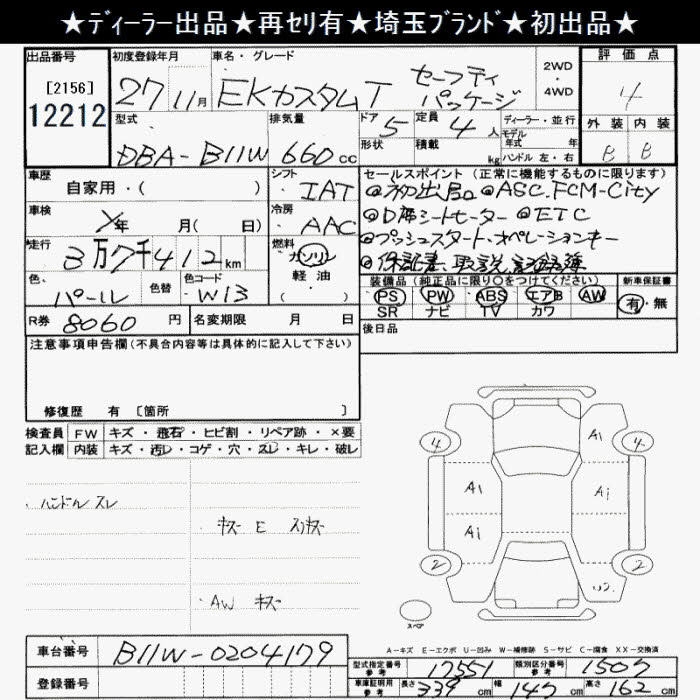 ★ディーラー出品★再セリ有★埼玉ブランド★初出品★
出品番号
[2156]
12212
初度登録年月
27 11月
車名・グレード
EKカスタムT セーフティパッケージ
2WD・4WD
評価点
4
型式
DBA-B11W
排気量
660cc
ドア
5
形状
定員
4人
積載 kg
ディーラー・並行
モデル年式 年
ハンドル 左・右
外装 内装
B B
車歴
自家用・( )
シフト
IAT
セールスポイント(正常に機能するものに限ります)
◎初出品 ◎ASC.FCM-City
◎D席シートヒーター ◎ETC
◎プッシュスタート・オペレーションキー
◎保証書、取説、記録簿
車検
年 月( 日)
冷房
AAC
走行
3万7千412km
燃料
ガソリン
軽油
・( )
色
パール
色替
色コード
W13
装備品(純正品に限り○をつけてください)
PS PW ABS エアB AW
SR ナビ TV カワ
新車保証書
有・無
R券 8060円
名変期限 月 日
後日品
注意事項申告欄(不具合内容等は具体的に記入して下さい)
修復歴 有 [箇所 ]
検査員 FW キズ・飛石・ヒビ割・リペア跡・×要
記入欄 内装 キズ・汚レ・コゲ・穴・スレ・キレ・破レ
・ハンドル スレ
・キズ E スリキズ
・AW キズ
4 A1 4
A1 A1
A1
2 U2 2
スペア
A-キズ E-エクボ U-凹み W-補修跡 S-サビ C-腐食 XX-交換済
車台番号
B11W-0204179
登録番号
型式指定番号 参考
17551
類別区分番号 参考
1507
車庫証明用 参考
長さ 339cm 幅 147cm 高さ 162cm